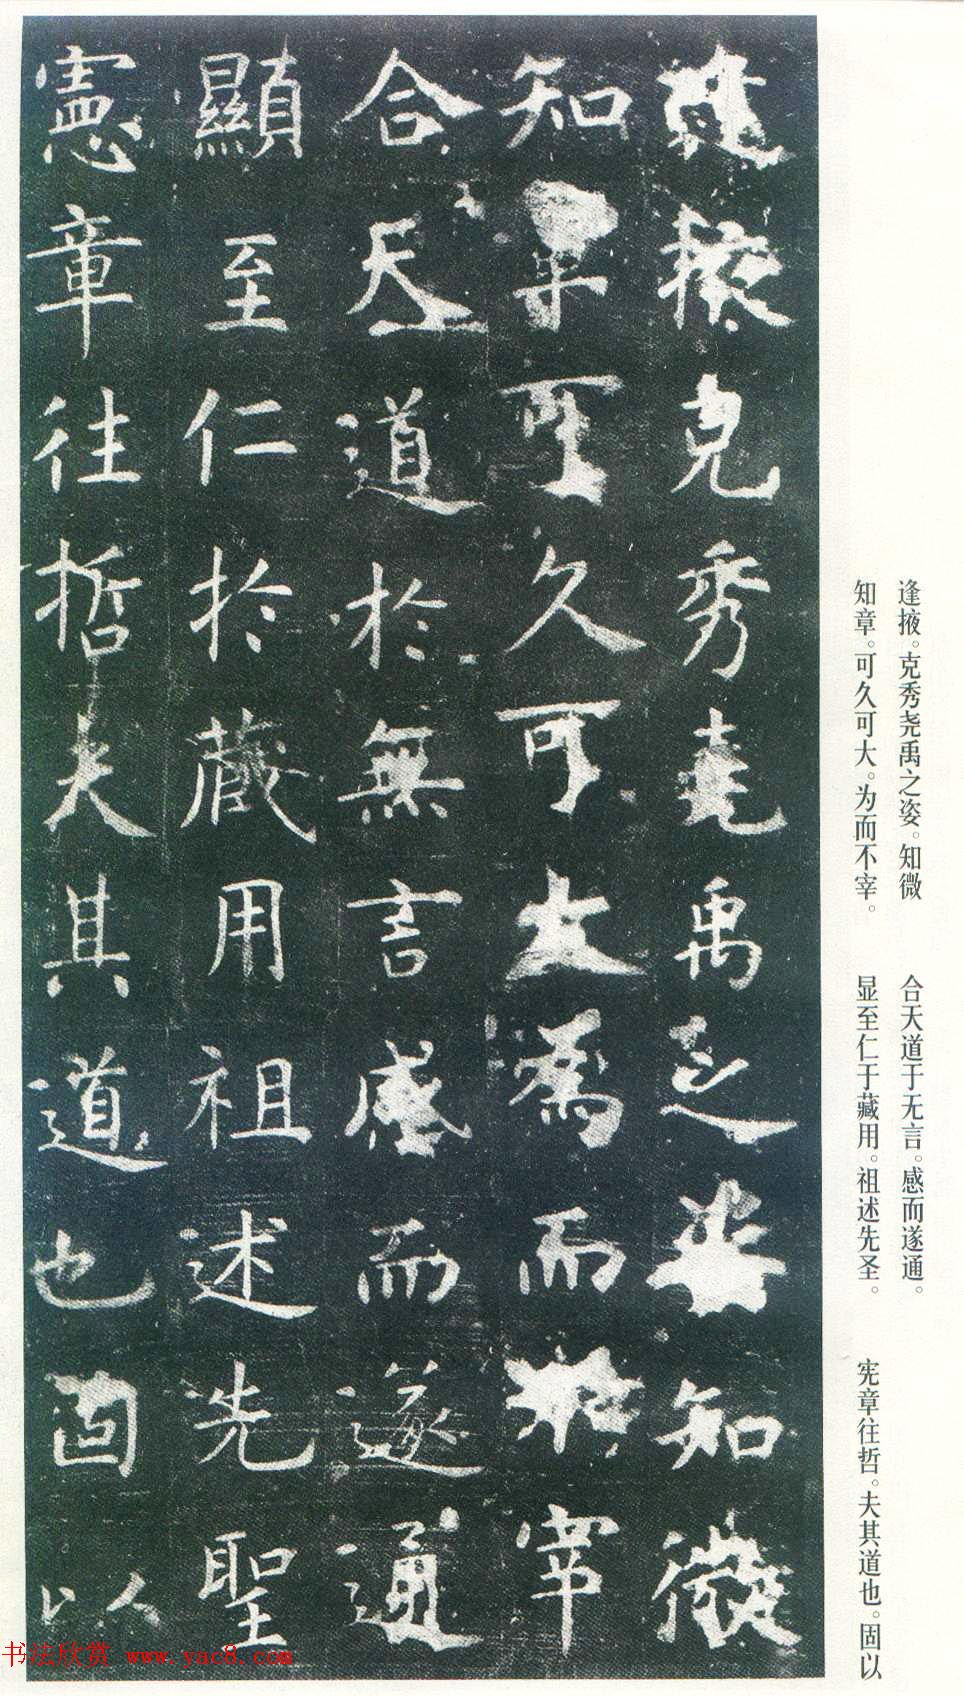 逢掖克秀堯禹之姿知微
知章可久可大為而不宰
合天道於無言感而遂通
顯至仁於藏用祖述先聖
憲章往哲夫其道也固以
逢掖。克秀尧禹之姿。知微
知章。可久可大。为而不宰。
合天道于无言。感而遂通。
显至仁于藏用。祖述先圣。
宪章往哲。夫其道也。固以
书法欣赏 www.yac8.com